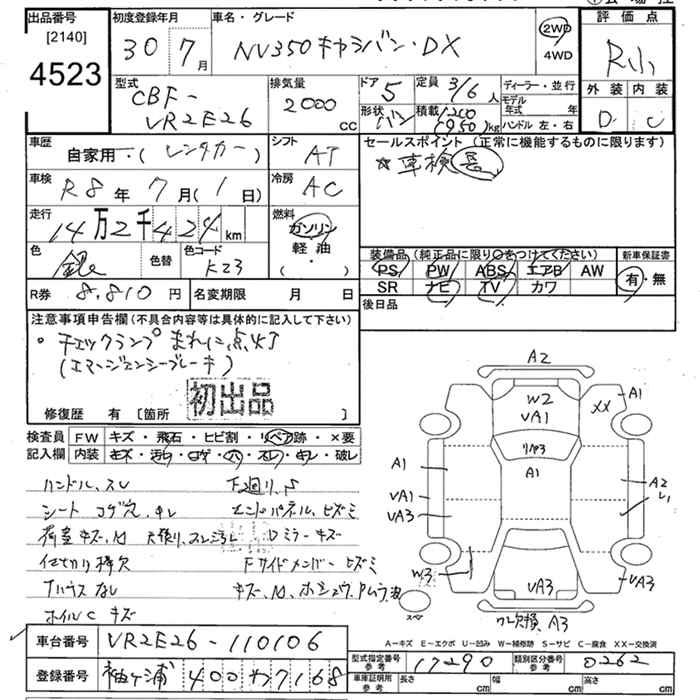 出品番号
[2140]
4523
初度登録年月
30年7月
車名・グレード
NV350キャラバン・DX
2WD
4WD
評価点
R小
外装 内装
D C
型式
CBF-
VR2E26
排気量
2000 cc
ドア 5
形状 バン
定員 3/6 人
積載 1200
(950) kg
ディーラー・並行
モデル年式 年
ハンドル 左・右
車歴
自家用・(レンタカー)
シフト AT
セールスポイント (正常に機能するものに限ります)
☆車検長
車検 R8年7月(1日)
冷房 AC
走行 14万2千424km
燃料
ガソリン
軽・油
( ・ )
色 銀
色替
色コード K23
装備品 (純正品に限り○をつけてください)
新車保証書
PS PW ABS エアB AW
SR ナビ TV カワ
有・無
R券 8,810円
名変期限 月 日
後日品
注意事項申告欄(不具合内容等は具体的に記入して下さい)
・チェックランプまれに点灯
(エマージェンシーブレーキ)
初出品
修復歴 有 [箇所 ]
検査員
記入欄
FW キズ・飛石・ヒビ割・リペア跡・×要
内装 キズ・汚れ・コゲ・穴・スレ・キレ・破レ
ハンドル、スレ
シート コゲ穴、キレ
荷室 キズ、凹
仕切り棒欠
ナルウス なし
ホイルC キズ
F廻り、S
エンドパネル、ヒズミ
Dミラー キズ
Fサイドメンバー ヒズミ
A2
A1
XX
W2
VA1
リペア3
A1
A1
VA1
VA3
A2
L1
W3
VA3
VA3
スペア
A3
A-キズ E-エクボ U-凹み W-補修跡 S-サビ C-腐食 XX-交換済
車台番号 VR2E26-110106
登録番号 袖ヶ浦 400 わ 7168
型式指定番号
参考
17290
類別区分番号
参考
0262
車庫証明用
参考
長さ cm
幅 cm
高さ cm